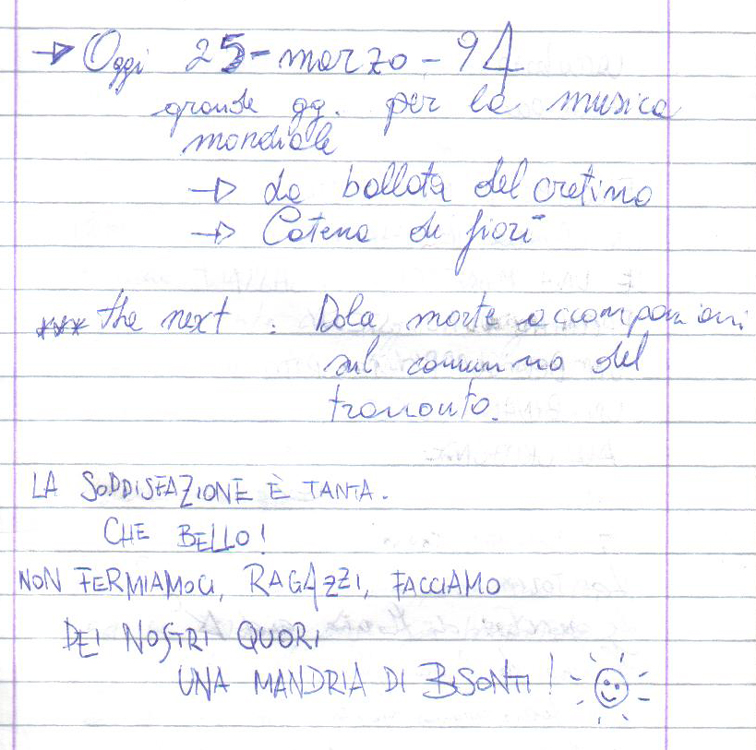 → Oggi 25-marzo-94
grande gg. per la musica
mondiale
→ La ballata del cretino
→ Catena di fiori
*** the next : Dola morte accompagnami
sul cammino del
tramonto.
LA SODDISFAZIONE È TANTA.
CHE BELLO!
NON FERMIAMOCI, RAGAZZI, FACCIAMO
DEI NOSTRI QUORI
UNA MANDRIA DI BISONTI!